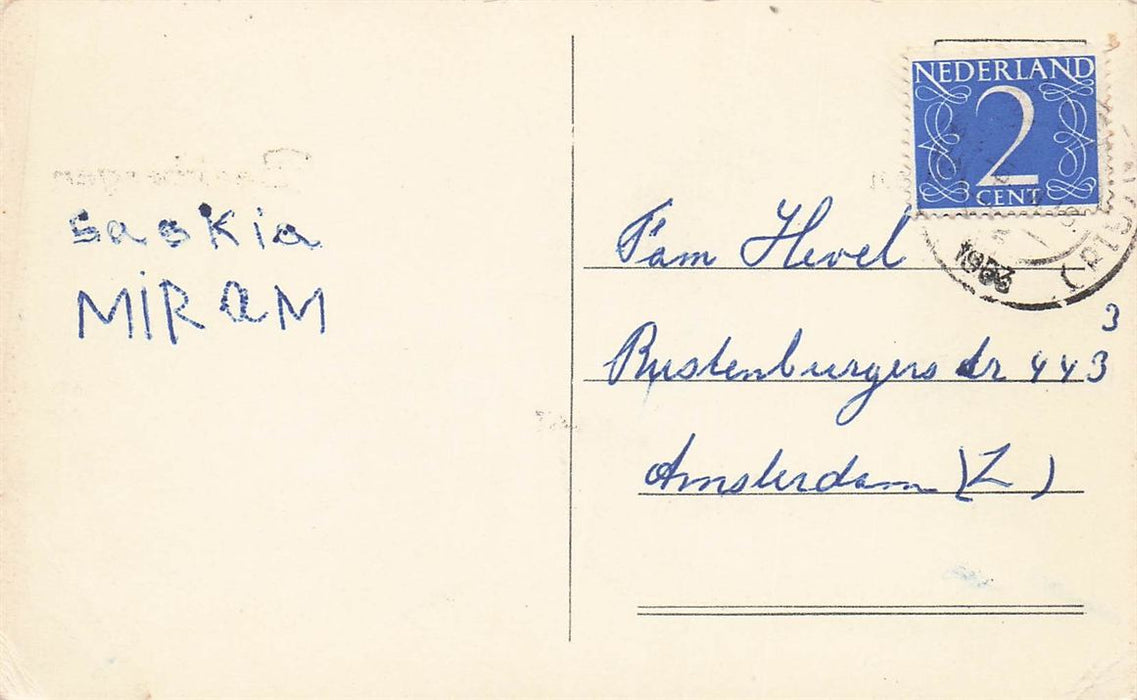 saskia
MIRaM
NEDERLAND
2
CENT
1953
Fam Hevel
3
Rustenburgerstr 443
Amsterdam (Z)